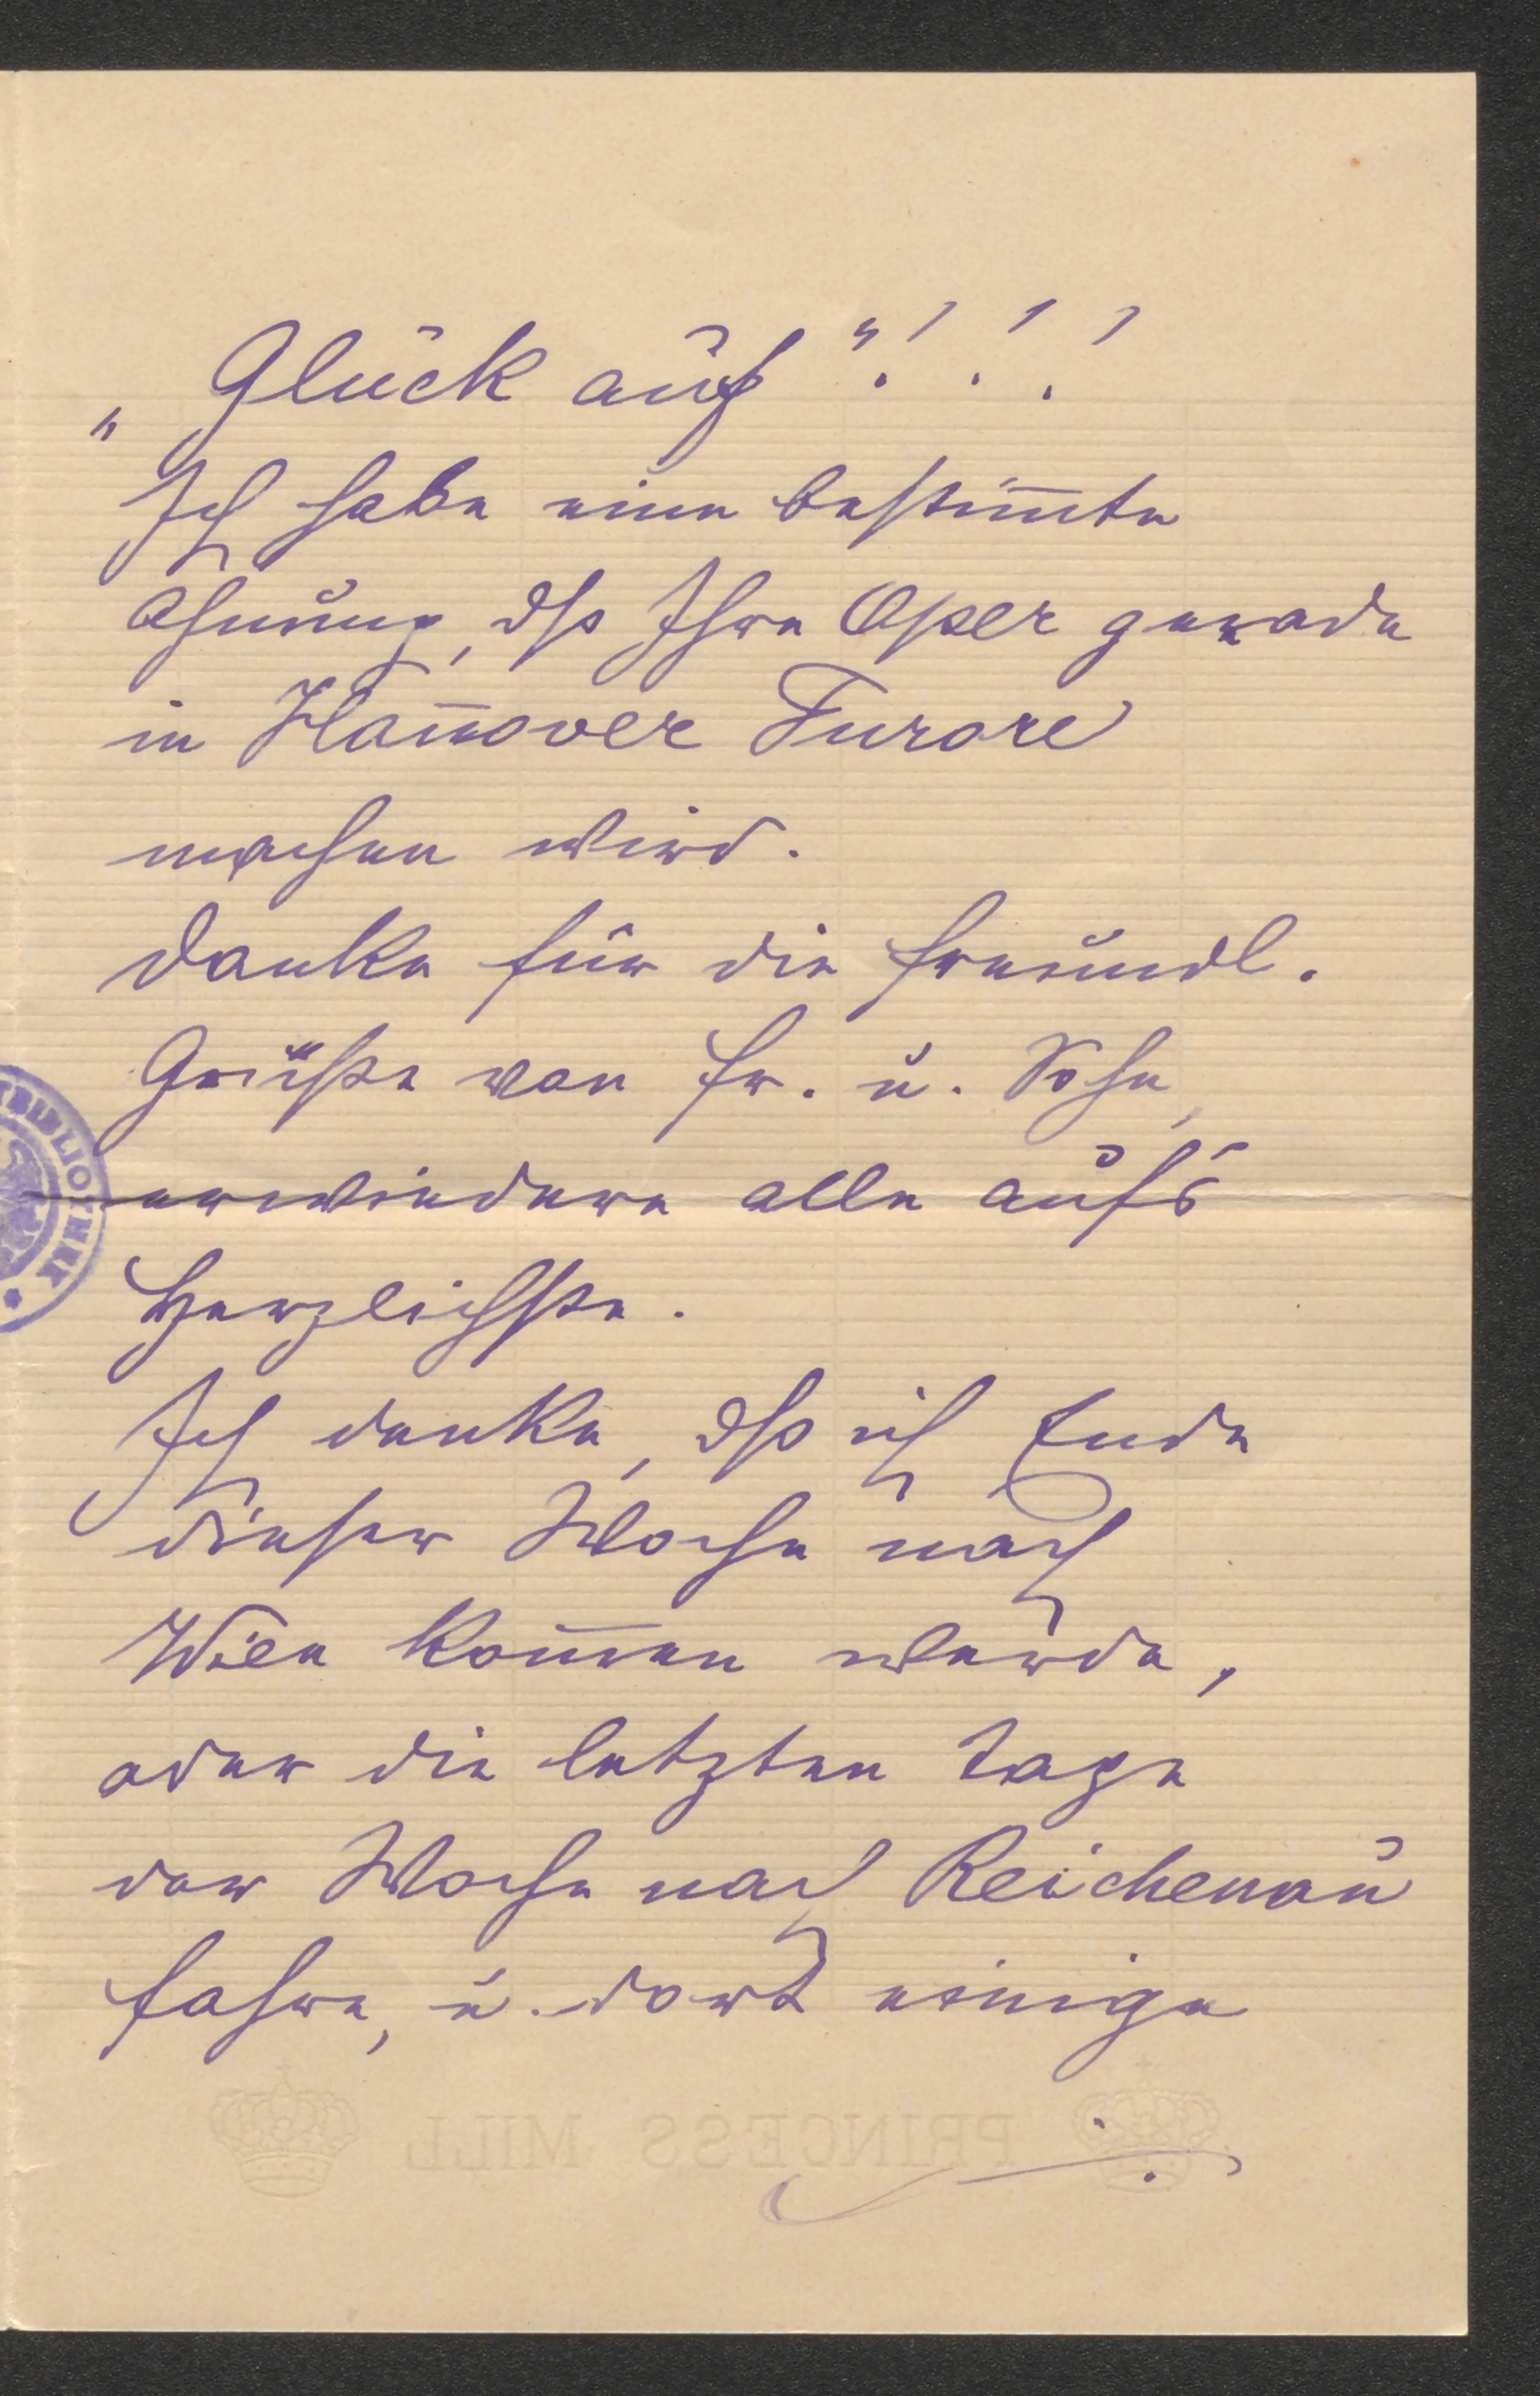 „Glück auf“!!!
Ich habe eine bestim̅te
Ahnung, dß Ihre Oper gerade
in Han̅over Furore
machen wird.
Danke für die freundl.
Grüße von Fr. u. Sohn,
erwiedere alle auf's
Herzlichste.
Ich denke, dß ich Ende
dieser Woche nach
Wien kom̅en werde,
oder die letzten Tage
der Woche nach Reichenau
fahre, u. dort einige
TBIBLIOTHEK
PRINCESS MILL